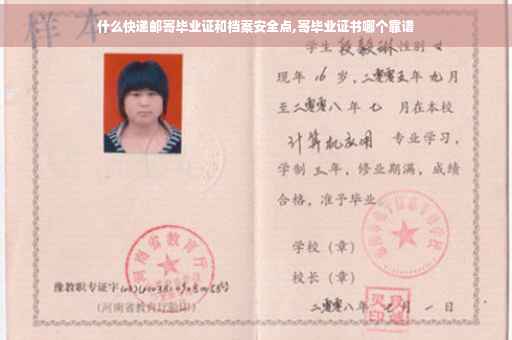 什么快递邮寄毕业证和档案安全点,寄毕业证书哪个靠谱
样本
学生段毅琳性别女
现年16岁,二零零五年九月
至二零零八年七月在本校
计算机应用 专业学习,
学制三年,修业期满,成绩
合格,准予毕业。
学校(章)
校长(章)
二零零八年七月一日
河南省教育厅
豫教职专证字
(河南省教育厅验印)